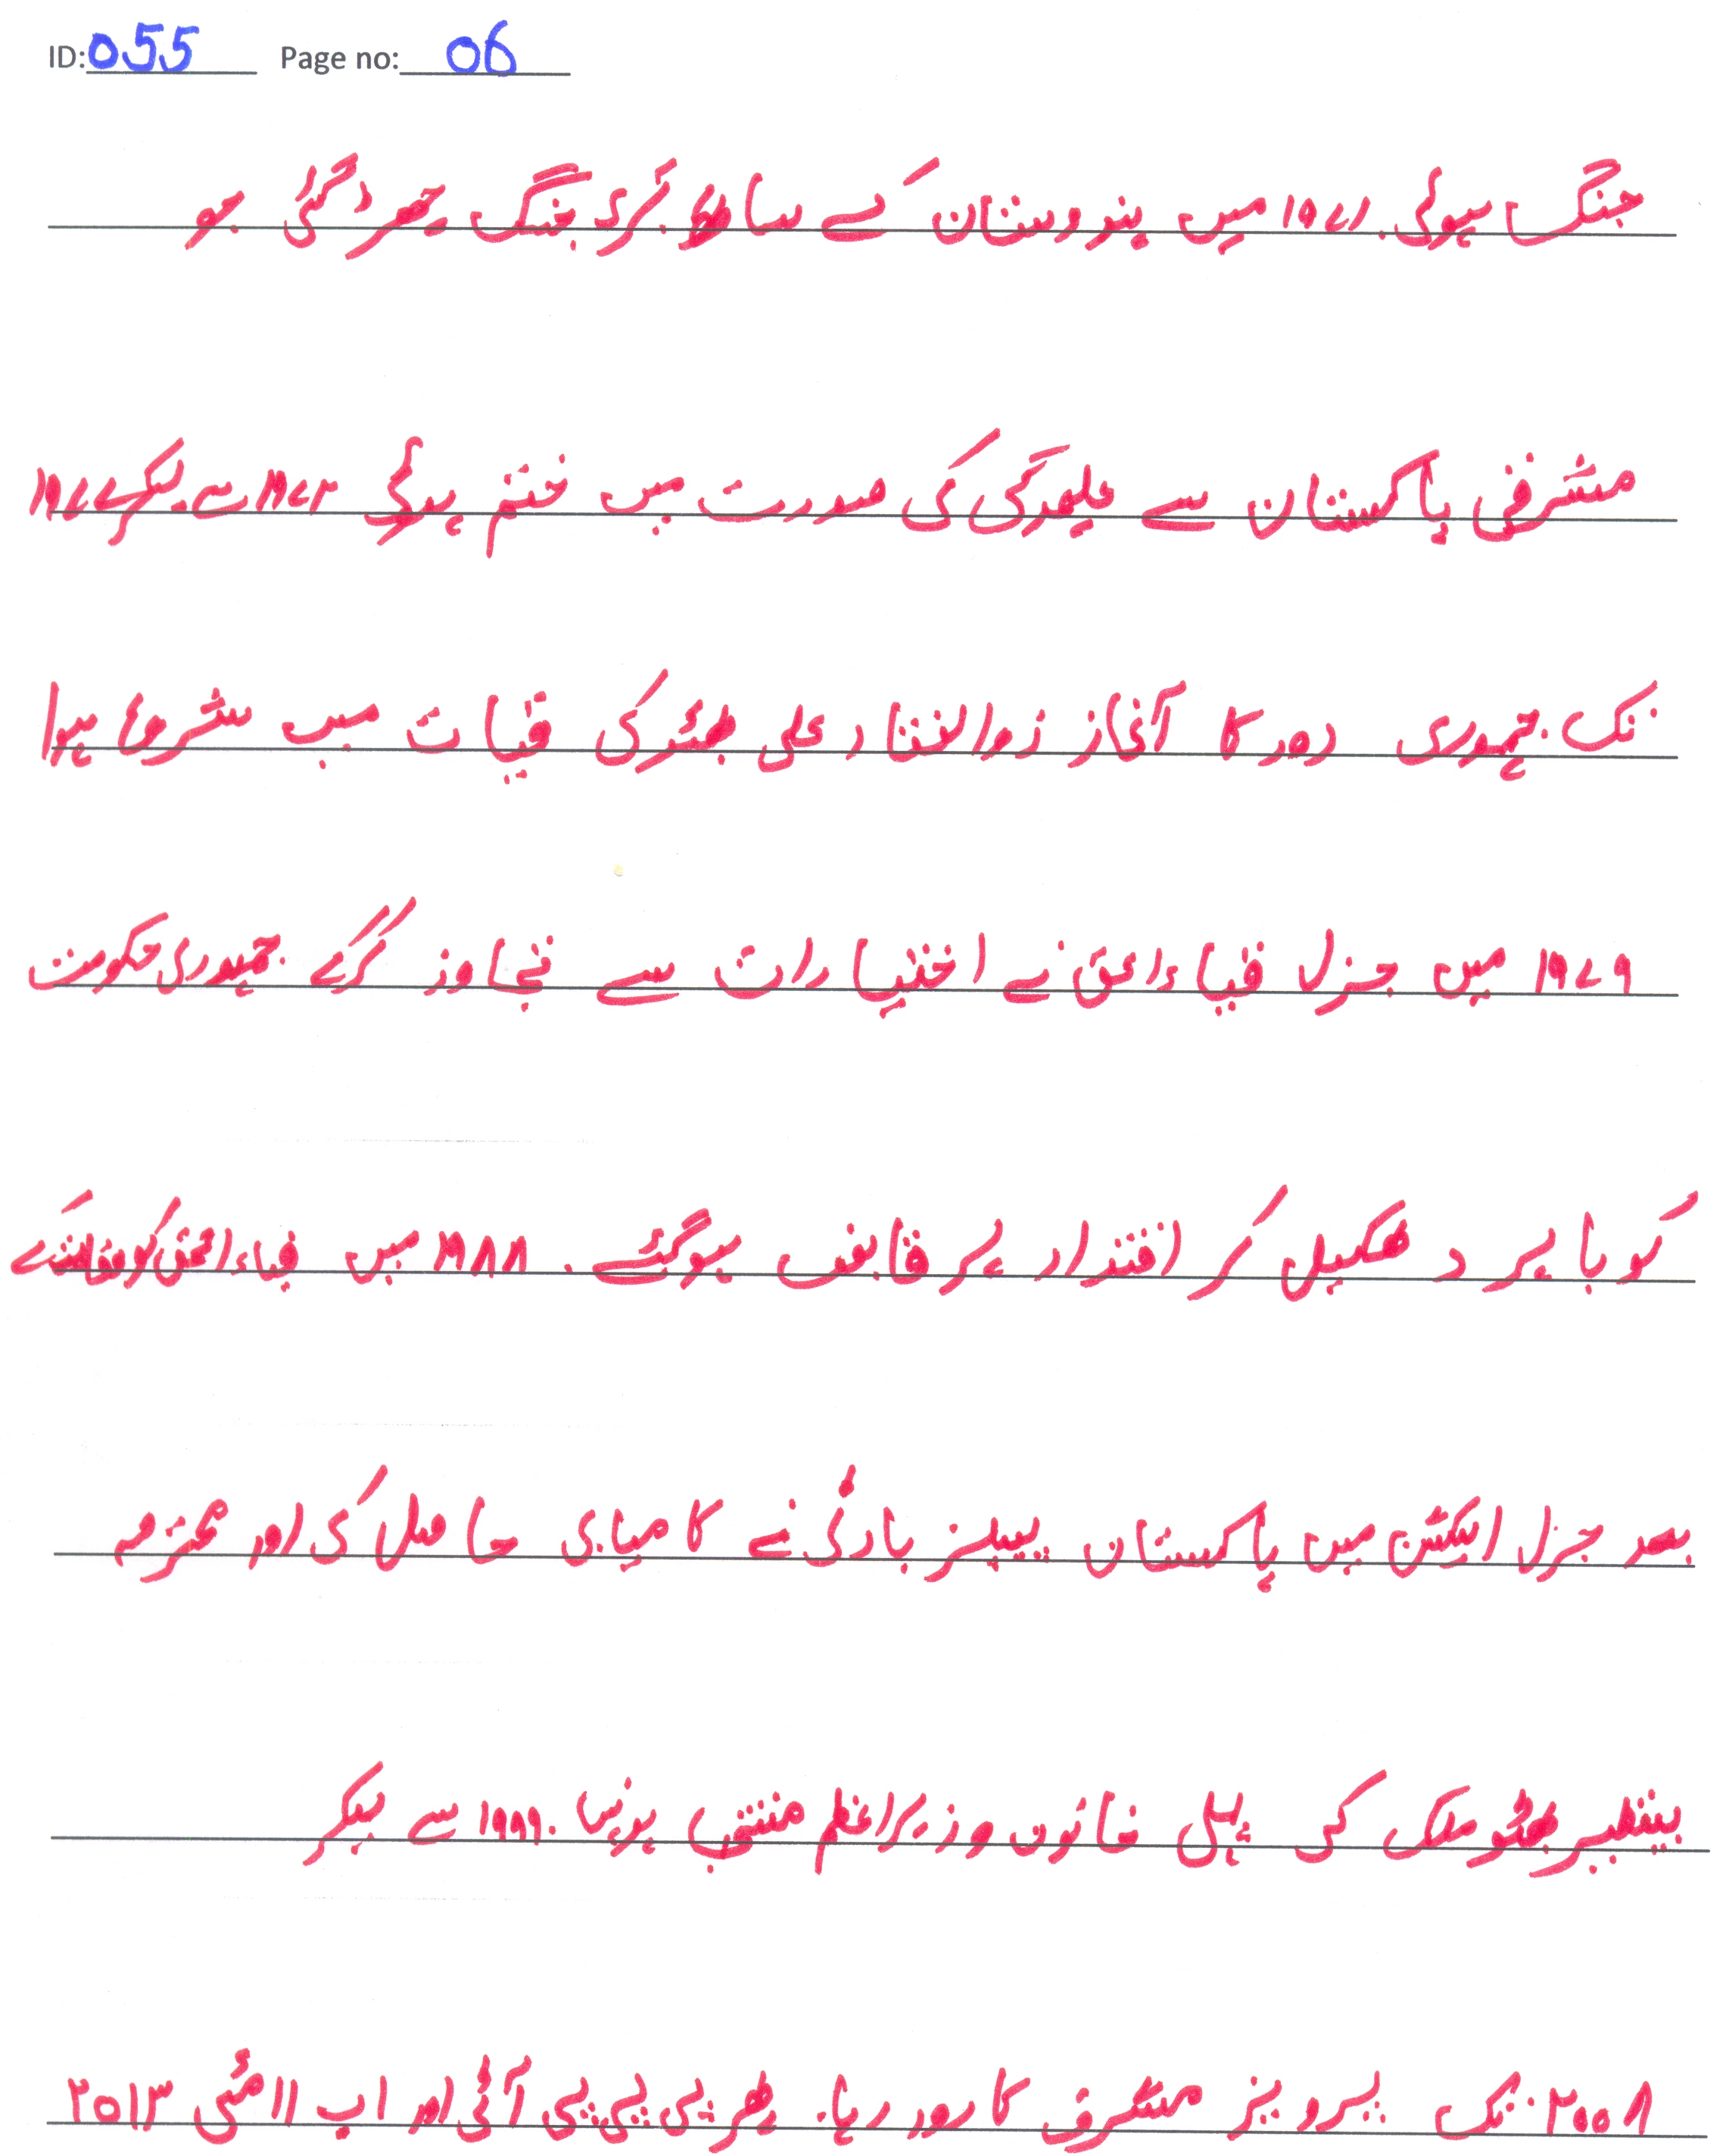 ID: 055 Page no: 06
جنگ ہوئی. ۱۹۷۱ میں ہندوستان کے ساتھ بڑی جنگ چھڑ گئی جو
مشرقی پاکستان سے علیحدگی کی صورت میں ختم ہوئی ۱۹۷۲ سے لیکر ۱۹۷۷
تک جمہوری دور کا آغاز ذوالفقار علی بھٹو کی قیات میں شروع ہوا
۱۹۷۹ میں جنرل ضیاءالحق نے اختیارات سے تجاوز کرکے جمہوری حکومت
کو باہر دھکیل کر اقتدار پر قابض ہوگئے. ۱۹۸۸ میں ضیاءالحق کو وفات کے
بعد جنرل الیکشن میں پاکستان پیپلز پارٹی نے کامیابی حاصل کی اور محترمہ
بینظیر بھٹو ملک کی پہلی خاتون وزیراعظم منتخب ہوئیں. ۱۹۹۹ سے لیکر
۲۰۰۸ تک پرویز مشرف کا دور رہا. پھر پی پی پی آئی اور اب ۱۱ مئی ۲۰۱۳